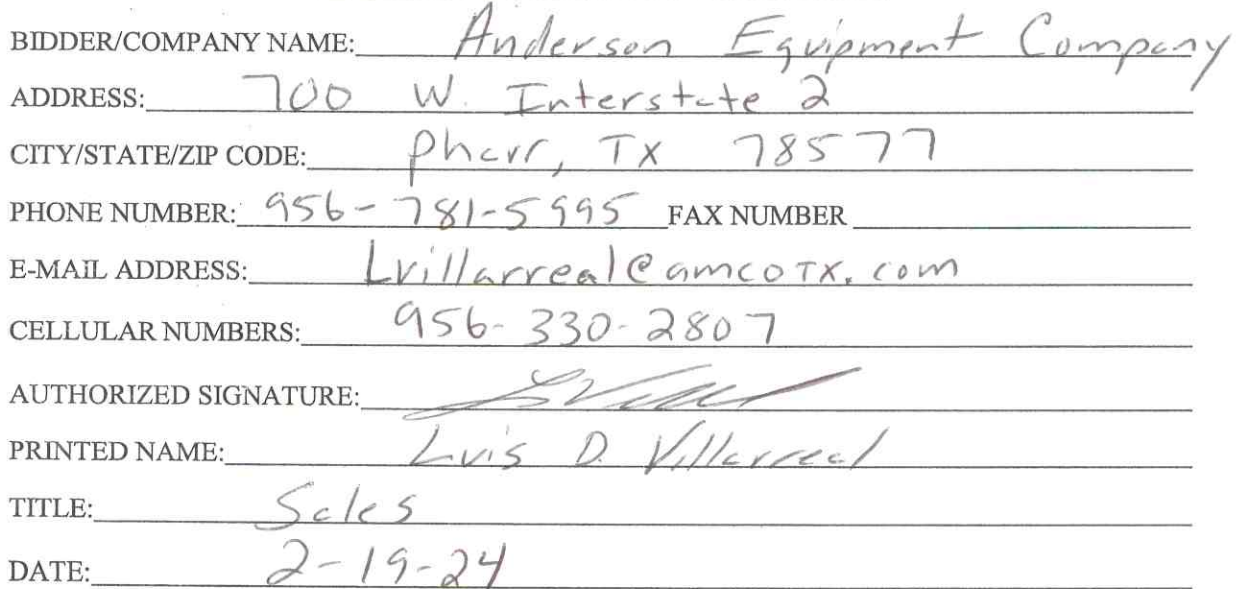 BIDDER/COMPANY NAME: Anderson Equipment Company
ADDRESS: 700 W. Interstate 2
CITY/STATE/ZIP CODE: Pharr, TX 78577
PHONE NUMBER: 956-781-5995 FAX NUMBER
E-MAIL ADDRESS: Lvillarreal@amcoTX.com
CELLULAR NUMBERS: 956-330-2807
AUTHORIZED SIGNATURE:
PRINTED NAME: Luis D. Villarreal
TITLE: Sales
DATE: 2-19-24